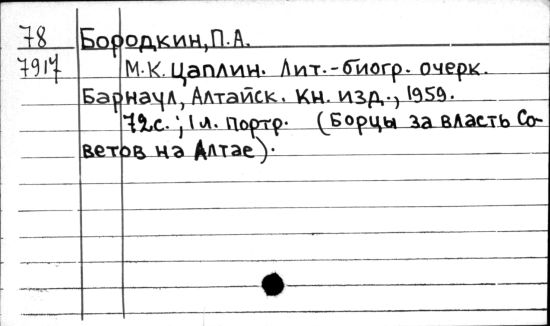 78 Бородкин, П.А.
7917 М.К. Цаплин. Лит.-биогр. очерк.
Барнаул, Алтайск. Кн. изд., 1959.
72с.; 1 л. портр. (Борцы за власть Со-
ветов на Алтае).